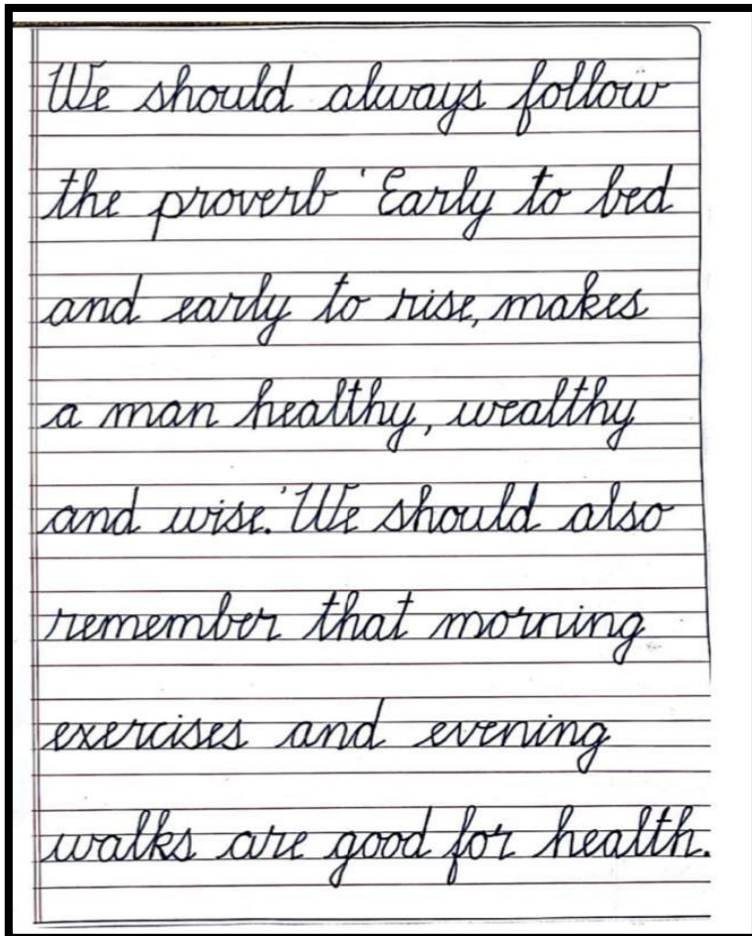 We should always follow
the proverb 'Early to bed
and early to rise, makes
a man healthy, wealthy
and wise.' We should also
remember that morning
exercises and evening
walks are good for health.